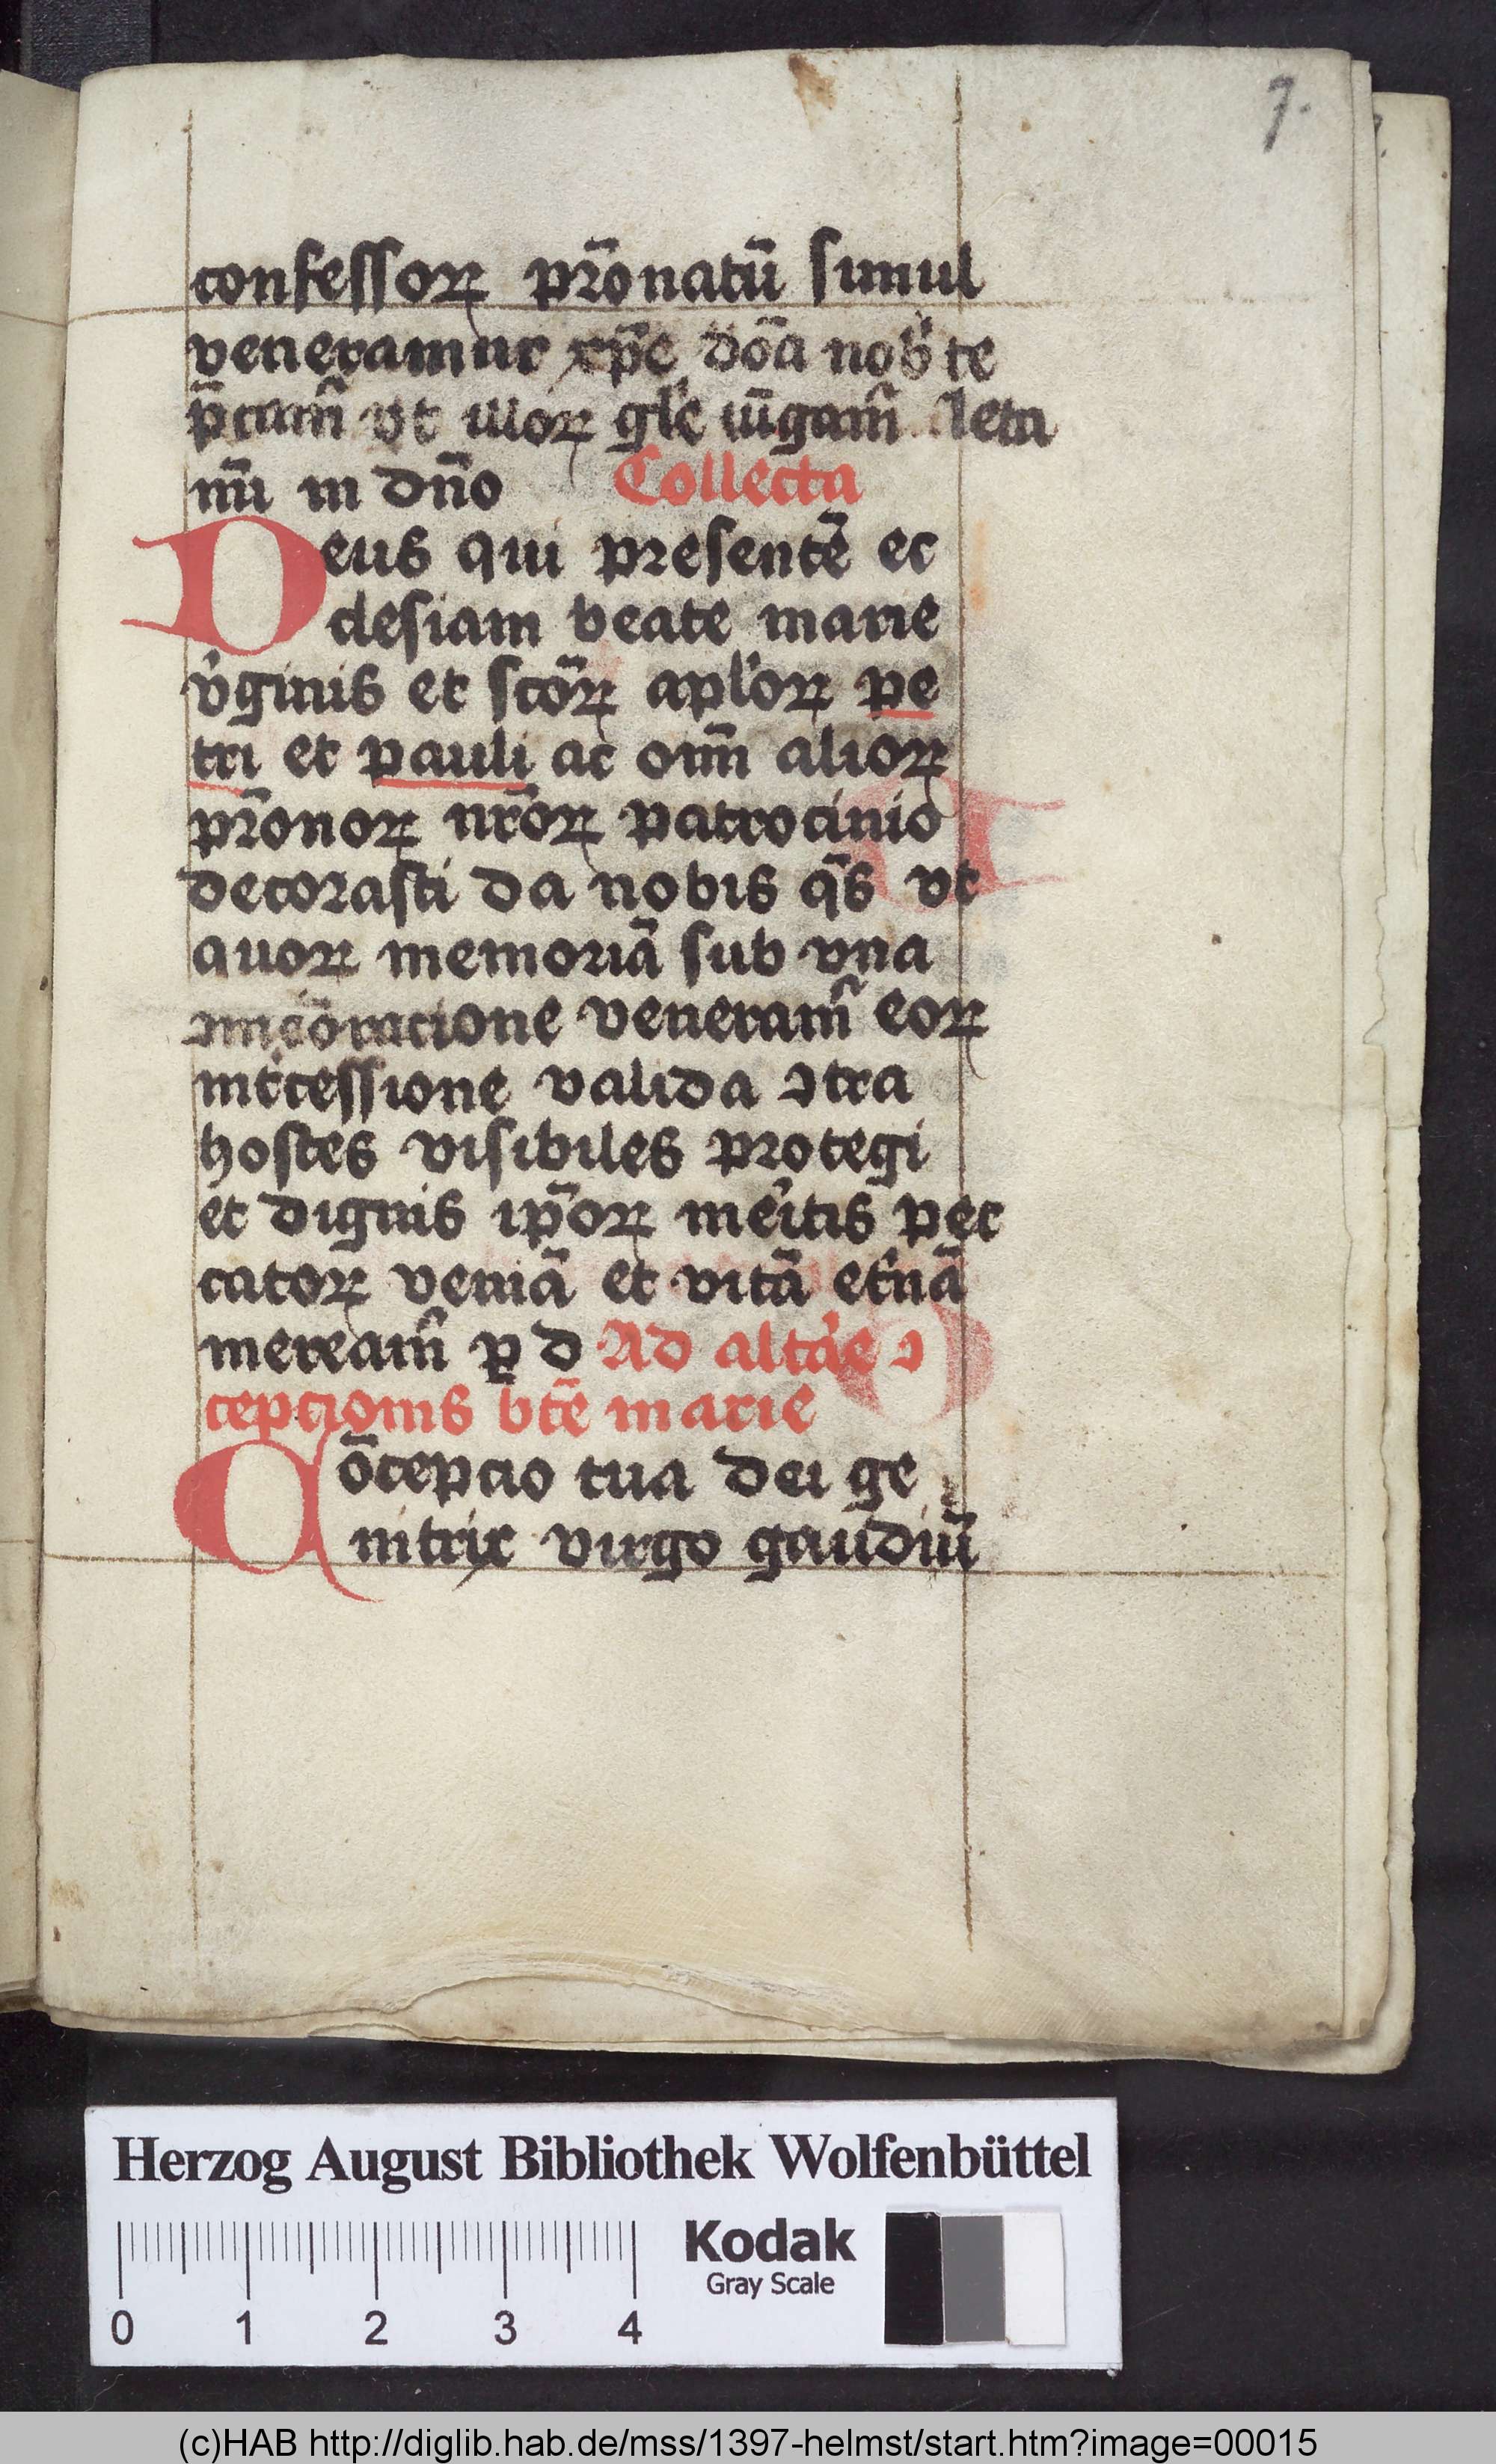 7.
confessoꝝ pr̄onatū simul
veneramur xp̄e dōa nob̾ te
p̄cam᷑ vt illoꝝ gl̾e iūgam᷑ leta
nṁi in dn̄o Collecta
Deus qui presentē ec
clesiam beate marie
v̾ginis et sctōꝝ apl̾oꝝ pe
tri et pauli ac oīm alioꝝ
pr̄onoꝝ nr̄oꝝ patrocinio
decorasti da nobis q̄s vt
quoꝝ memoriā sub vna
ↄmēoracione veneram᷑ eoꝝ
int̾cessione valida ↄtra
hostes visibiles protegi
et dignis ip̄oꝝ me̾itis pec
catoꝝ veniā et vitā et̾nā
meream᷑ ꝑ d Ad alta̾e ↄ
cepcionis bt̄e marie
Cōcepcio tua dei ge
nitrix virgo gaudiū
Herzog August Bibliothek Wolfenbüttel
Kodak
Gray Scale
0 1 2 3 4
(c)HAB http://diglib.hab.de/mss/1397-helmst/start.htm?image=00015